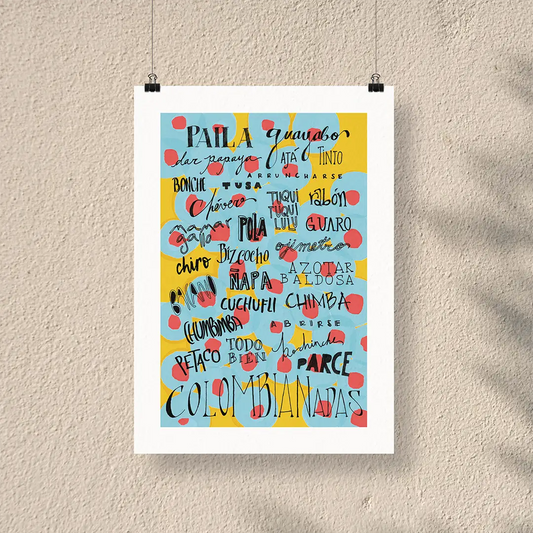 PAILA guayabo
dar papaya AJÁ TINTO
ARRUNCHARSE
BONCHE TUSA
Chévere TUQUI TUQUI LULU rabón
mamar gallo POLA GUARO
Bizcocho ojímetro
chiro ÑAPA AZOTAR BALDOSA
BACANO CUCHUFLI CHIMBA
CHUMBIMBA ABRIRSE
PETACO TODO BIEN Rechinche
PARCE
COLOMBIANADAS